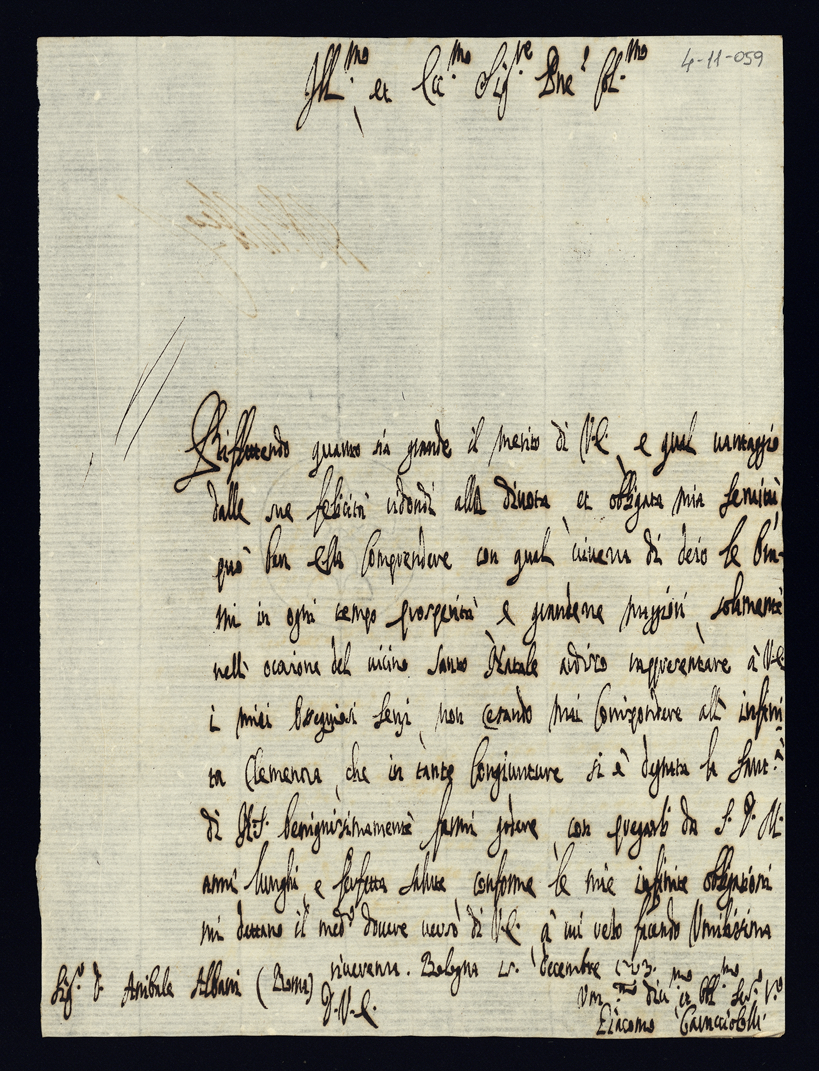 4-11-059
Ill.mo et Ecc.mo Sig.re Pne Col.mo
Riflettendo quanto sia grande il merito di V.E. e qual vantaggio
dalle sue felicità ridondi alla divota et obligata mia servitù
può ben ella comprendere con qual di le bra-
mi in ogni tempo prosperità e grandezze maggiori, solamente
nell' ocasione del vicino Santo Natale ardisco rappresentare à V.E.
i miei ossequiosi sensi, non cesando mai corrispondere all' infini
ta Clemenza, che in tante congiunture si è degnata la Sant.à
di N.S. benignissimamente farmi godere, con pregarli da S. D. M.
anni lunghi e perfetta salute conforme le mie infinite obligationi
mi dettano il med.o dovere verso di V.E. à cui resto facendo Umilissima
riverenza. Bologna decembre 1703.
Sig.r D. Anibale Albani (Roma)
D.V.E.
Um.mo Div.mo et Obl.mo Ser.re V.o
Giacomo